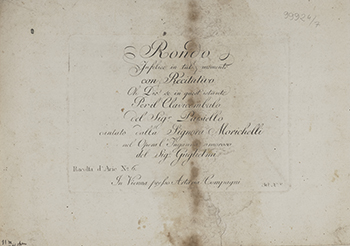 99924/7
Rondo
Infelice in tal momento
con Recitativo
Oh Dio se in quest istante
Per il Clavicembalo
del Sigr. Paisiello
cantato dalla Signora Morichelli
nel Opera l'Inganno amoroso
del Sigr. Guglielmi
Raccolta d'Arie No. 6.
In Vienna presso Artaria Compagni